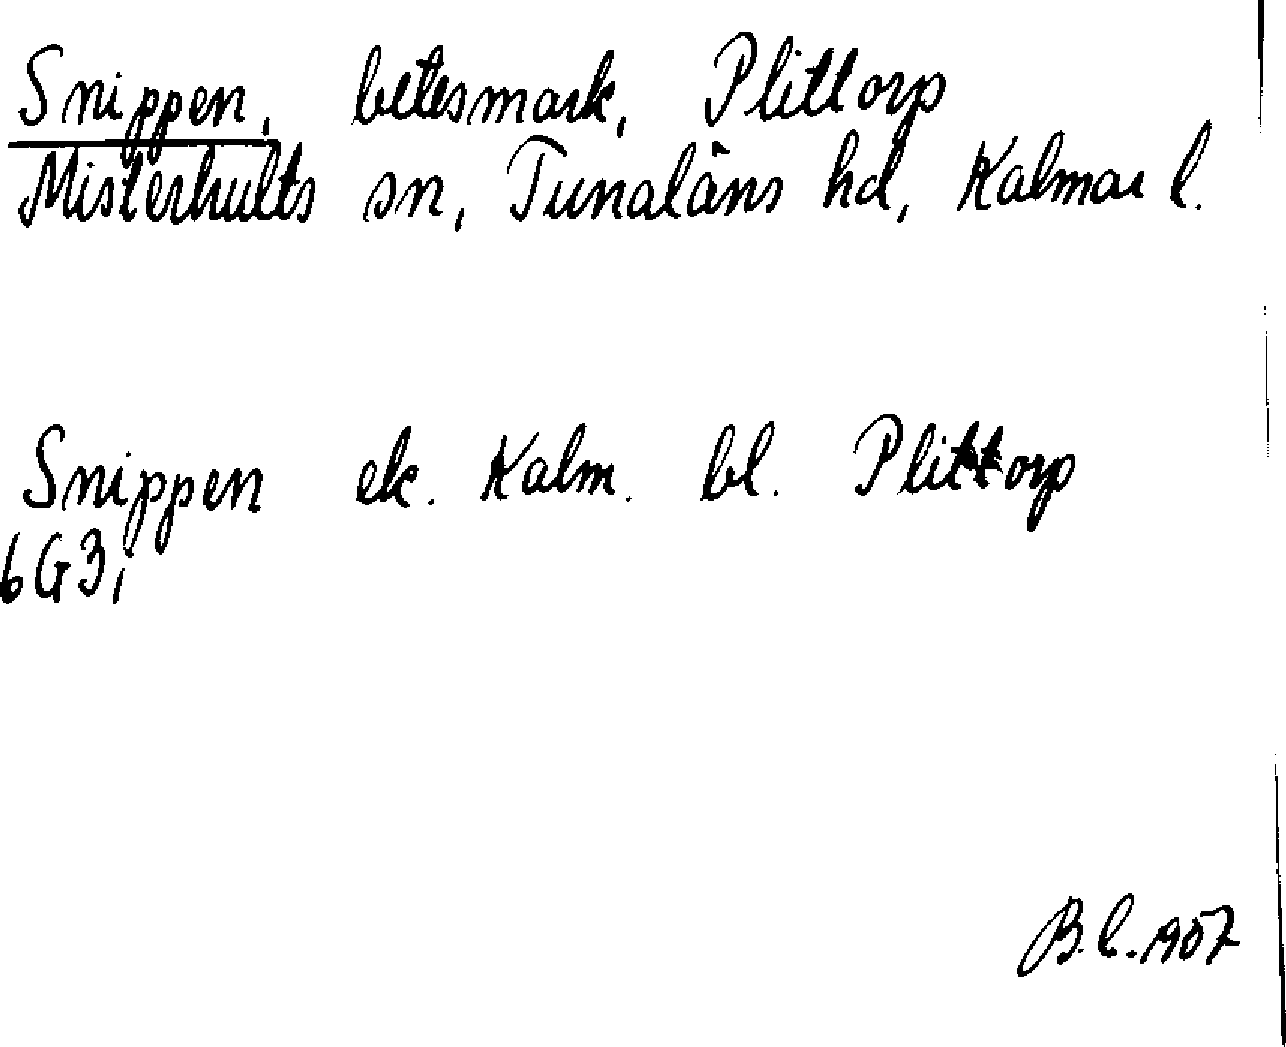 Snippen, betesmark, Plittorp
Misterhults sn, Tunaläns hd, Kalmar l.
Snippen ek. Kalm. bl. Plittorp
6G3i
B.C. 1957